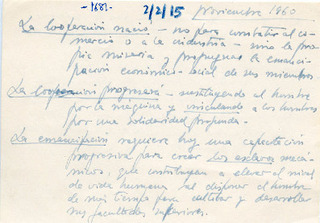 -168?- 2/2/15 noviembre 1960
La Cooperación nació - no para combatir al co-
mercio o a la industria - sino la pro-
pia miseria y propugnar la emanci-
pación económico-social de sus miembros
La Cooperación progresará - sustituyendo al hombre
por la máquina y vinculando a los hombres
por una solidaridad profunda.
La emancipación requiere hoy una capacitación
progresiva para crear los esclavos mecá-
nicos, que contribuyan a elevar el nivel
de vida humana al disponer el hombre
de más tiempo para cultivar y desarrollar
sus facultades superiores.